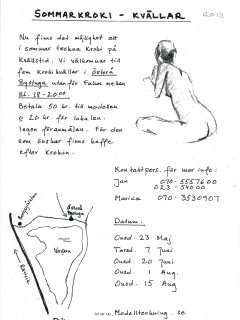 SOMMARKROKI - KVÄLLAR
2012
Nu finns det möjlighet att
i sommar teckna Kroki på
Kvällstid. Vi välkomnar till
fem Krokikvällar i Östborn
Bystuga utanför Falun mellan
Kl. 18-20.00
Betala 50 kr. till modellen
o 20 kr. för lokalen.
Ingen föranmälan. För den
som önskar finns kaffe
efter Krokin.
Kontaktpers. för mer info:
Jan 070-5557600
023-54000
Marica 070-3530907
Datum.
Onsd. 23 Maj
Torsd. 7 Juni
Onsd. 20 Juni
Onsd. 1 Aug.
Onsd. 15 Aug
Bystuga
www. Modellteckning.se